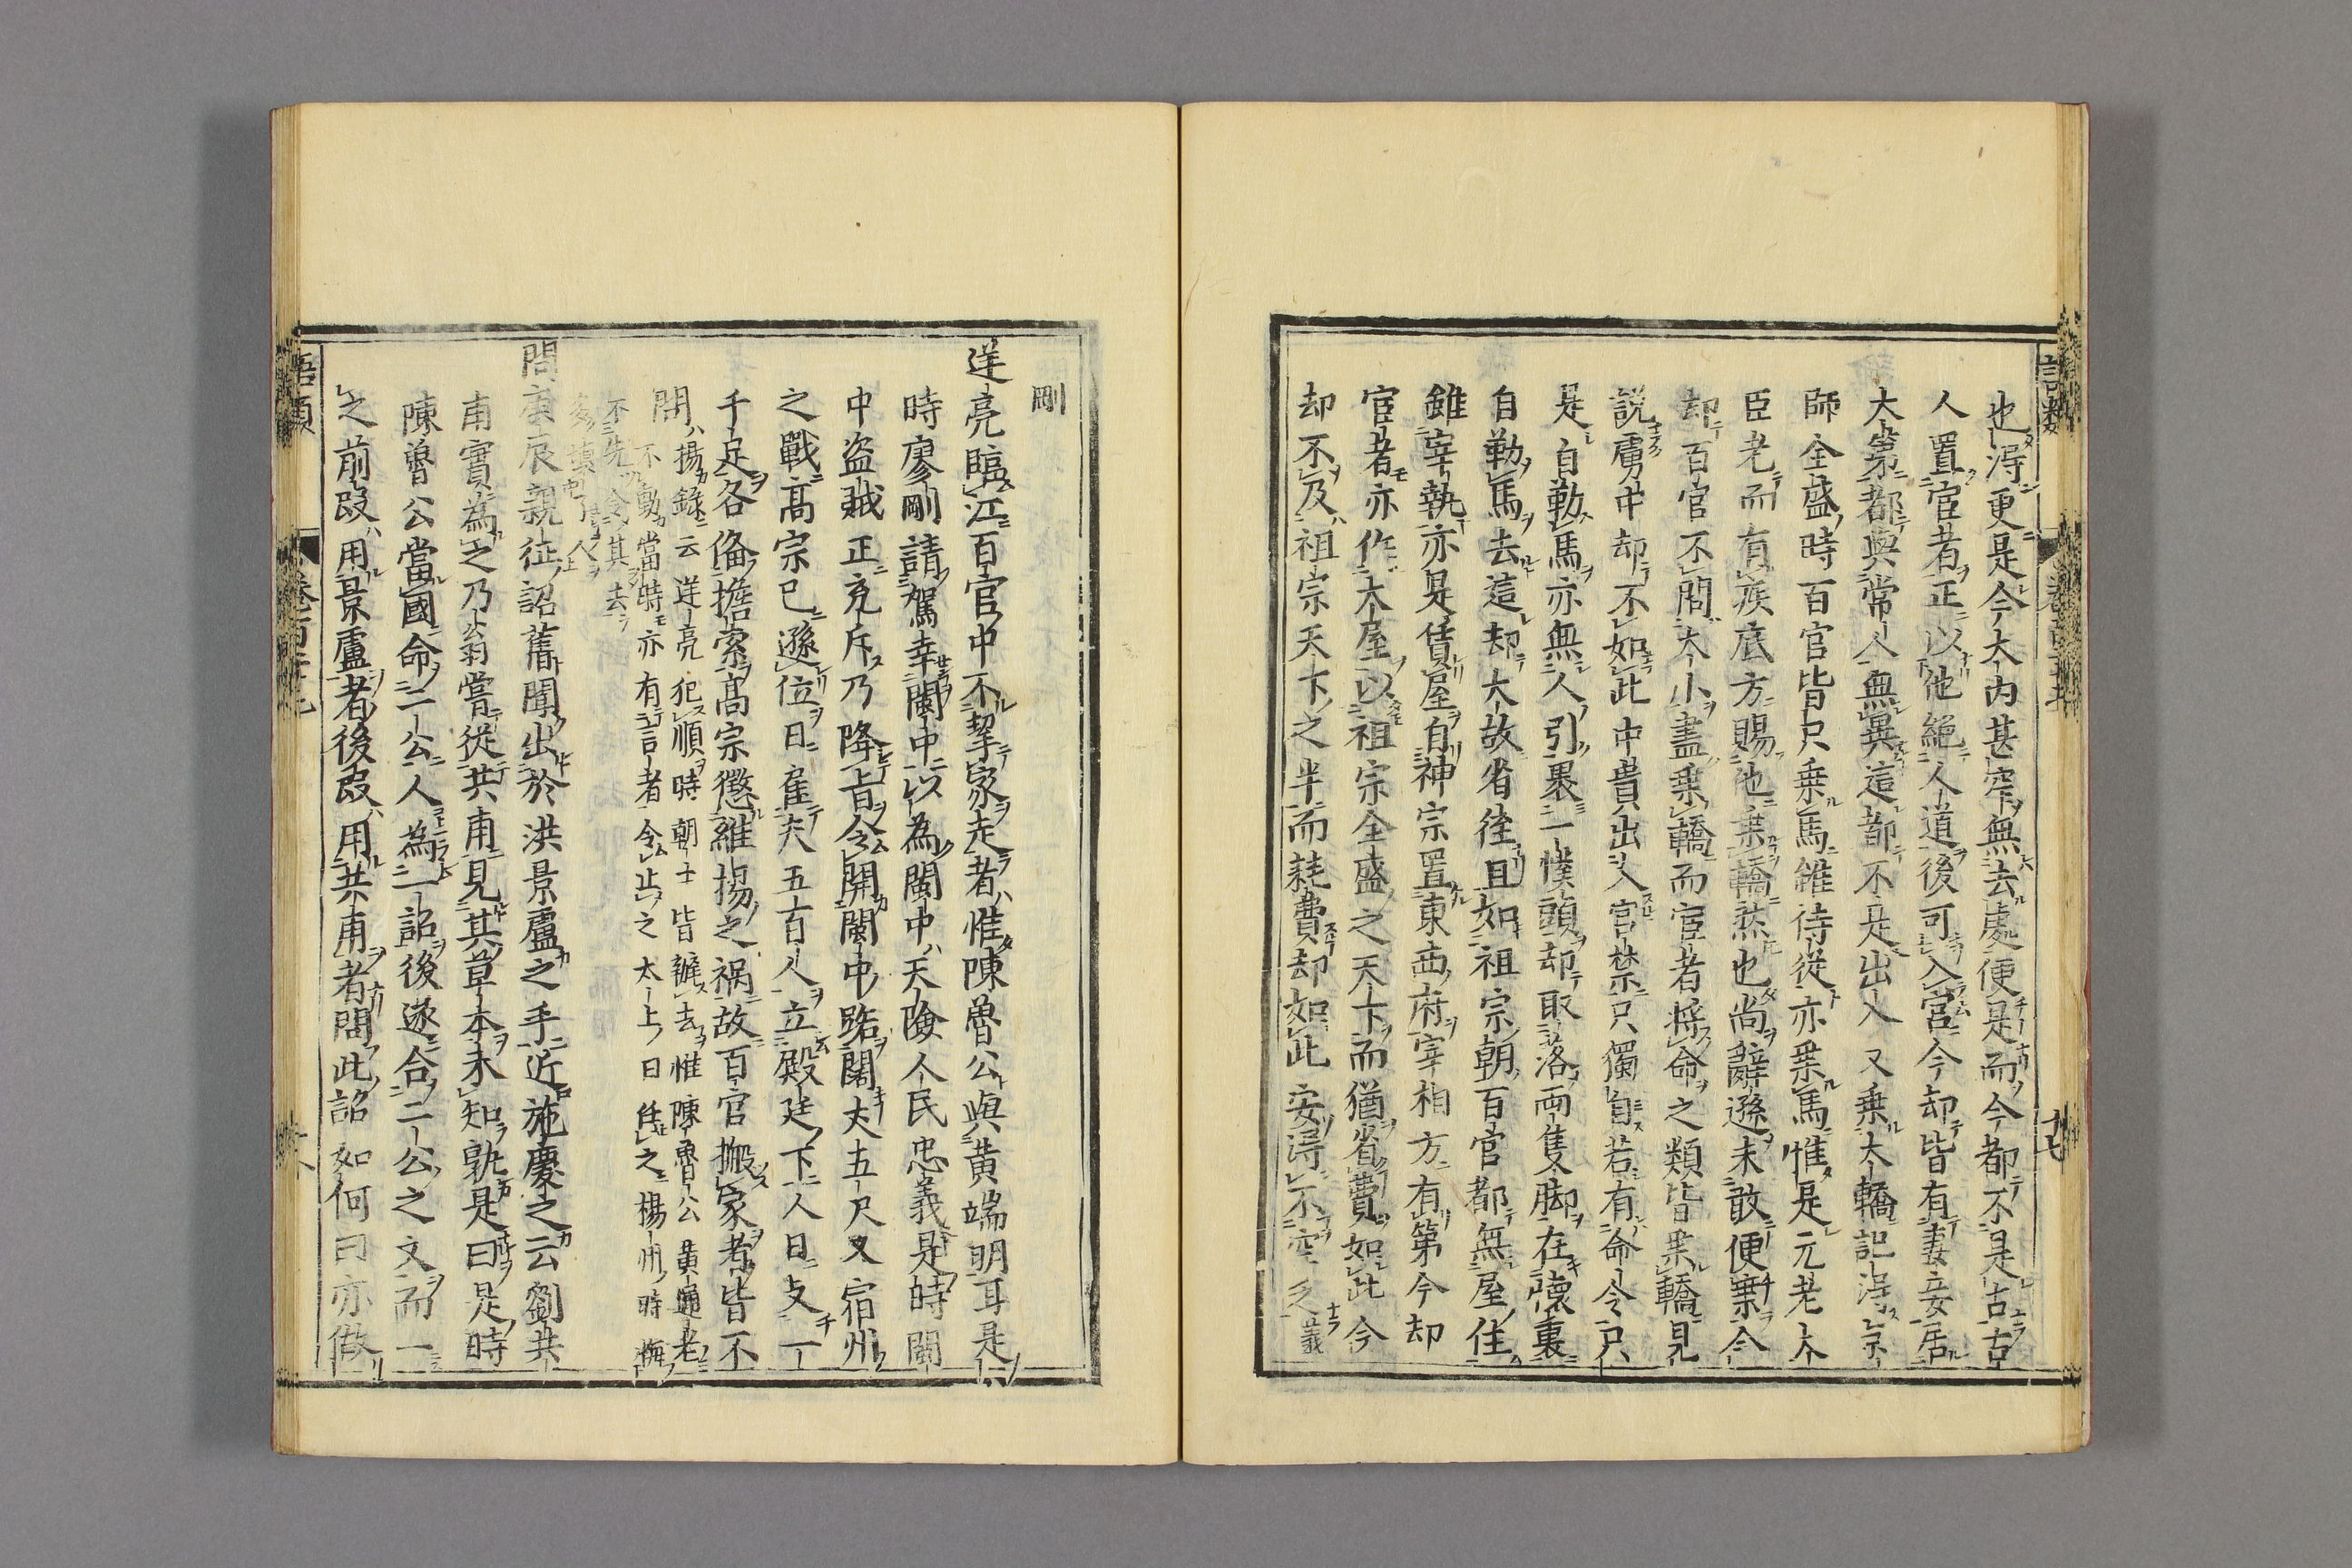 語類 卷百二十七 十七
也得更是今大内甚窄無去處便是而今都不是古古
人置宦者正以他絶人道後可入宮今却皆有妻妾居
大第都與常人無異這都不是出入又乗大轎記得京
師全盛時百官皆只乗馬雖侍從亦乗馬惟是元老大
臣老而有疾底方賜他乗轎然也尚辭遜未敢便乗今
却百官不問大小盡乗轎而宦者將命之類皆乗轎見
説虜中却不如此中貴出入宮禁只獨自若有命令只
是自勒馬亦無人引裹一幞頭却取落兩隻脚在懷裏
自勒馬去這却大故省徑且如祖宗朝百官都無屋住
雖宰執亦是賃屋自神宗置東西府宰相方有第今却
宦者亦作大屋以祖宗全盛之天下而猶省費如此今
却不及祖宗天下之半而耗費却如此安得不空乏義
剛
逆亮臨江百官中不挈家走者惟陳魯公與黄端明耳是
時廖剛請駕幸閩中以為閩中天險人民忠義是時閩
中盗賊正充斥乃降旨令開閩中路闊丈五尺又宿州
之戰高宗已遜位日雇夫五百人立殿廷下人日支一
千足各備擔索高宗懲維揚之禍故百官搬家者皆不
問揚録云逆亮犯順時朝士皆辦去惟陳魯公黄通老
不動當時亦有言者令止之太上曰任之楊州時悔
不先令其去
多壊了人
問庚辰親征詔舊聞出於洪景盧之手近施慶之云劉共
甫實為之乃翁嘗從共甫見其草本未知孰是曰是時
陳魯公當國命二公人為一詔後遂合二公之文而一
之前段用景盧者後段用共甫者問此詔如何曰亦做
語類 卷百二十七